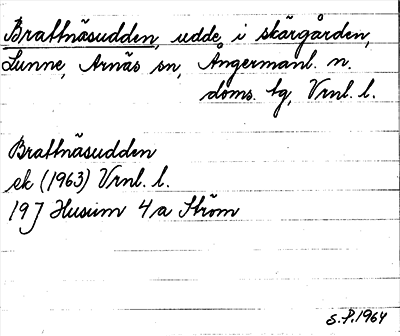 Brattnäsudden, udde i skärgården,
Lunne, Arnäs sn, Ångermanl. n.
doms. tg, Vrnl. l.
Brattnäsudden
ek (1963) Vrnl. l.
19J Husum 4a Ström
S.P. 1964